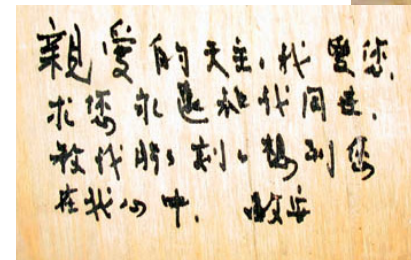 親愛的天主，我愛您，
求您永遠和我同在，
教我時時刻刻想到您
在我心中。 敬安